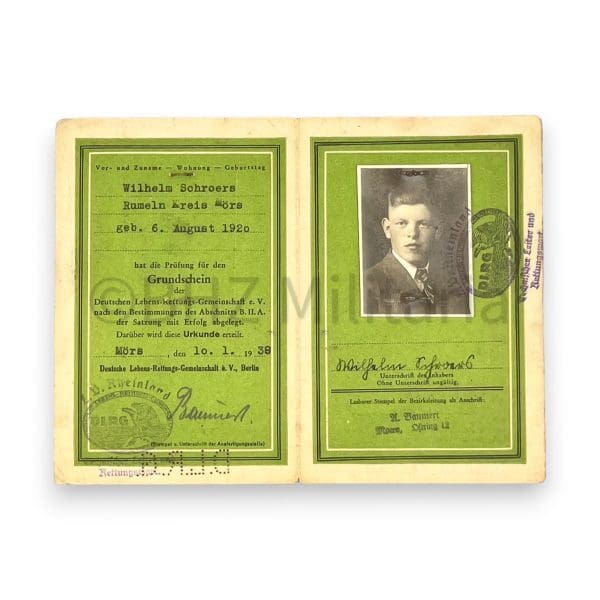 Vor- und Zuname — Wohnung — Geburtstag
Wilhelm Schroers
Rumeln Kreis Mörs
geb. 6. August 1920
hat die Prüfung für den
Grundschein
der
Deutschen Lebens-Rettungs-Gemeinschaft e. V.
nach den Bestimmungen des Abschnitts B. II A.
der Satzung mit Erfolg abgelegt.
Darüber wird diese Urkunde erteilt.
Mörs, den 10. 1. 1938
Deutsche Lebens-Rettungs-Gemeinschaft e. V., Berlin
L.V. Rheinland
DLRG
Bannert
(Stempel u. Unterschrift der Ausfertigungsstelle)
D.L.R.G.
Rheinland
DLRG
Technischer Leiter und
Rettungswart
Wilhelm Schroers
Unterschrift des Inhabers
Ohne Unterschrift ungültig.
Lesbarer Stempel der Bezirksleitung als Anschrift:
A. Bannert
Moers, Ostring 12
© Militaria